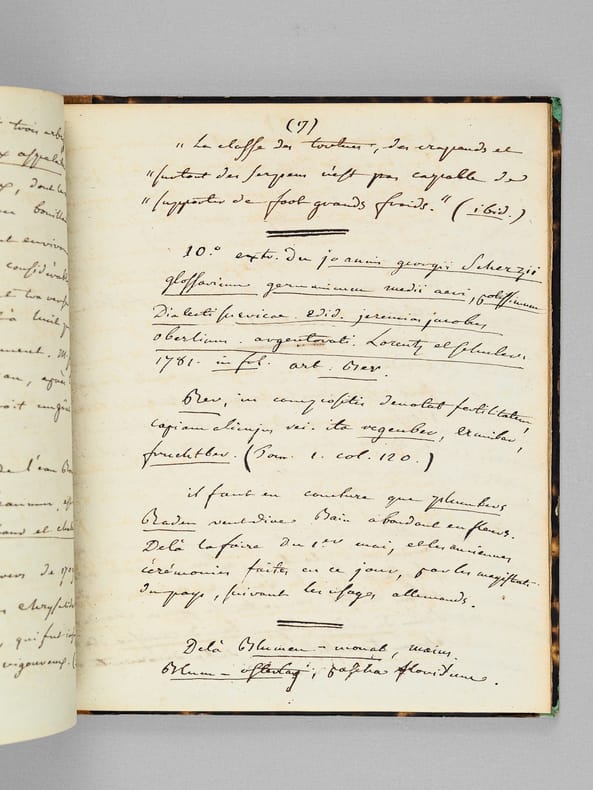 (7)
" La classe des tortues, des crapauds et
" surtout des serpens n'est pas capable de
" supporter de fort grands froids." (ibid.)
10.° extr. du joannis georgii Scherzii
glossarium germanicum medii aevi, potissimum
Dialecti suevicae. edid. jeremias jacobus
oberlinus. argentorati. Lorentz et Schuler.
1781. in fol. art. Ber.
Ber, in compositis denotat fertilitatem,
copiam alicujus rei. ita
fruchtber. (Tom. 1. col. 120.)
il faut en conclure que plumbers
Baden veut dire Bain abondant en fleurs.
Delà la foire du 1.er mai, et les anciennes
cérémonies faites en ce jour, par les magistrats
du pays, suivant les usages allemands.
Delà Blumen-monat, maius
Blum-ostertag, pascha floridum.
trois arb
appelé
, dont la
bouillan
t environ
considérab
et
à huit p
ment. M.
an, après
oit
de l'eau
et
vers de 17
chrysalid
, qui fut
vigoureux. (